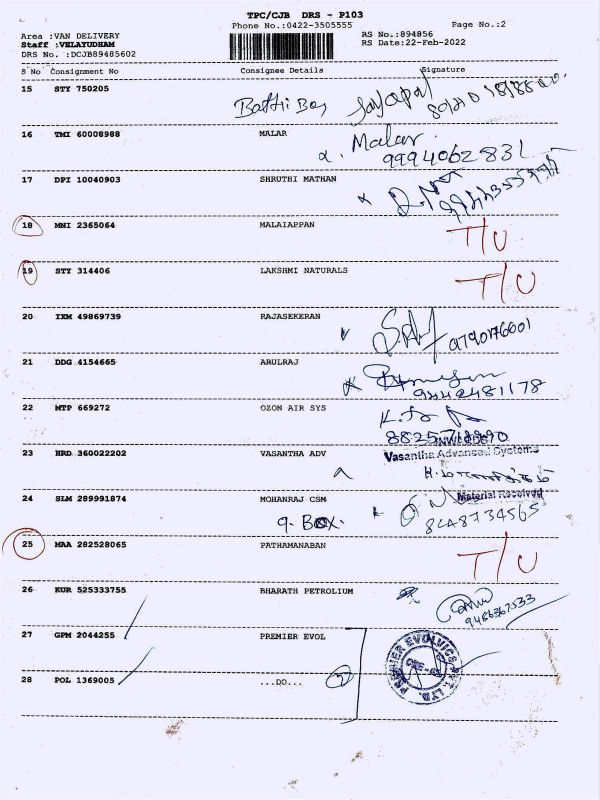 TPC/CJB DRS - P103
Phone No.:0422-3505555
Page No.:2
Area :VAN DELIVERY
RS No.:894856
Staff :VELAYUDHAM
RS Date:22-Feb-2022
DRS No. :DCJB89485602
S No Consignment No Consignee Details Signature
15 STY 750205
16 TMI 60008988 MALAR Malar.
9994062831
17 DPI 10040903 SHRUTHI MATHAN
18 MNI 2365064 MALAIAPPAN T/U
19 STY 314406 LAKSHMI NATURALS T/U
20 IXM 49869739 RAJASEKERAN
9790176001
21 DDG 4154665 ARULRAJ
9442481178
22 MTP 669272 OZON AIR SYS
23 HRD 360022202 VASANTHA ADV Vasantha Advanced Systems
Material Received
24 SLM 289991874 MOHANRAJ CSM
9. BOX.
25 MAA 282528065 PATHAMANABAN T/U
26 KUR 525333755 BHARATH PETROLIUM
9486367533
27 GPM 2044255 PREMIER EVOL
28 POL 1369005 ...DO... 2
PREMIER EVOLVICS PVT. LTD.
CBE-